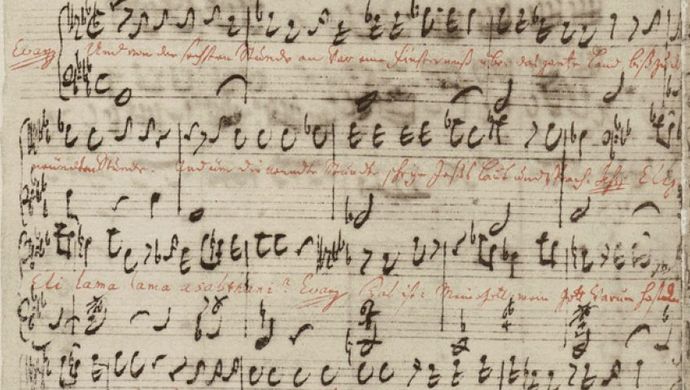 Evang Und von der sechsten Stunde an war eine Finsterniß über das gantze Land biß zu d
neundten Stunde. Und um die neundte Stunde schrye Jesus laut und sprach. Eli,
Eli lama lama asabthani? Evang Das ist: Mein Gott, mein Gott warum hast du